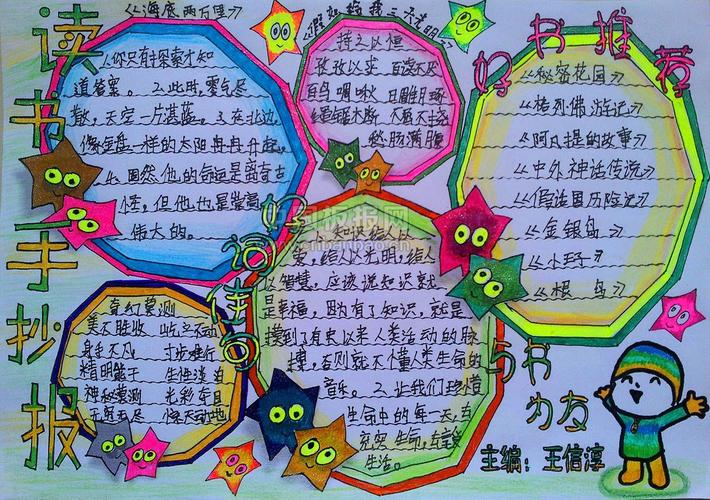 读书手抄报
《海底两万里》
《你只有探索才知
道答案。2.此时,雾气尽
散,天空一片湛蓝。3.在北边,
像金盘一样的太阳冉冉升起。
4.固然,他的命运是离奇古
怪,但他也是崇高
伟大的。
《假如给我三天光明》
持之以恒
孜孜以求 百读不厌
百鸟啁啾
愁肠满腹
好书推荐
《秘密花园》
《格列佛游记》
《阿凡提的故事》
《中外神话传说》
《假话国历险记》
《金银岛》
《小王子》
《根鸟》
好词佳句
奇幻莫测
美不胜收 屹立不动
身手不凡 寸步难行
精明能干 生性淡泊
神秘莫测 光彩夺目
无穷无尽 惊天动地
1.知识给人以
爱,给人以光明,给人
以智慧,应该说知识就
是幸福,因为有了知识,就是
摸到了有史以来人类活动的脉
搏,否则就不懂人类生命的
音乐。2.让我们珍惜
生命中的每一天,去
充实生命,去享受
生活。
与书
为友
主编:王信淳